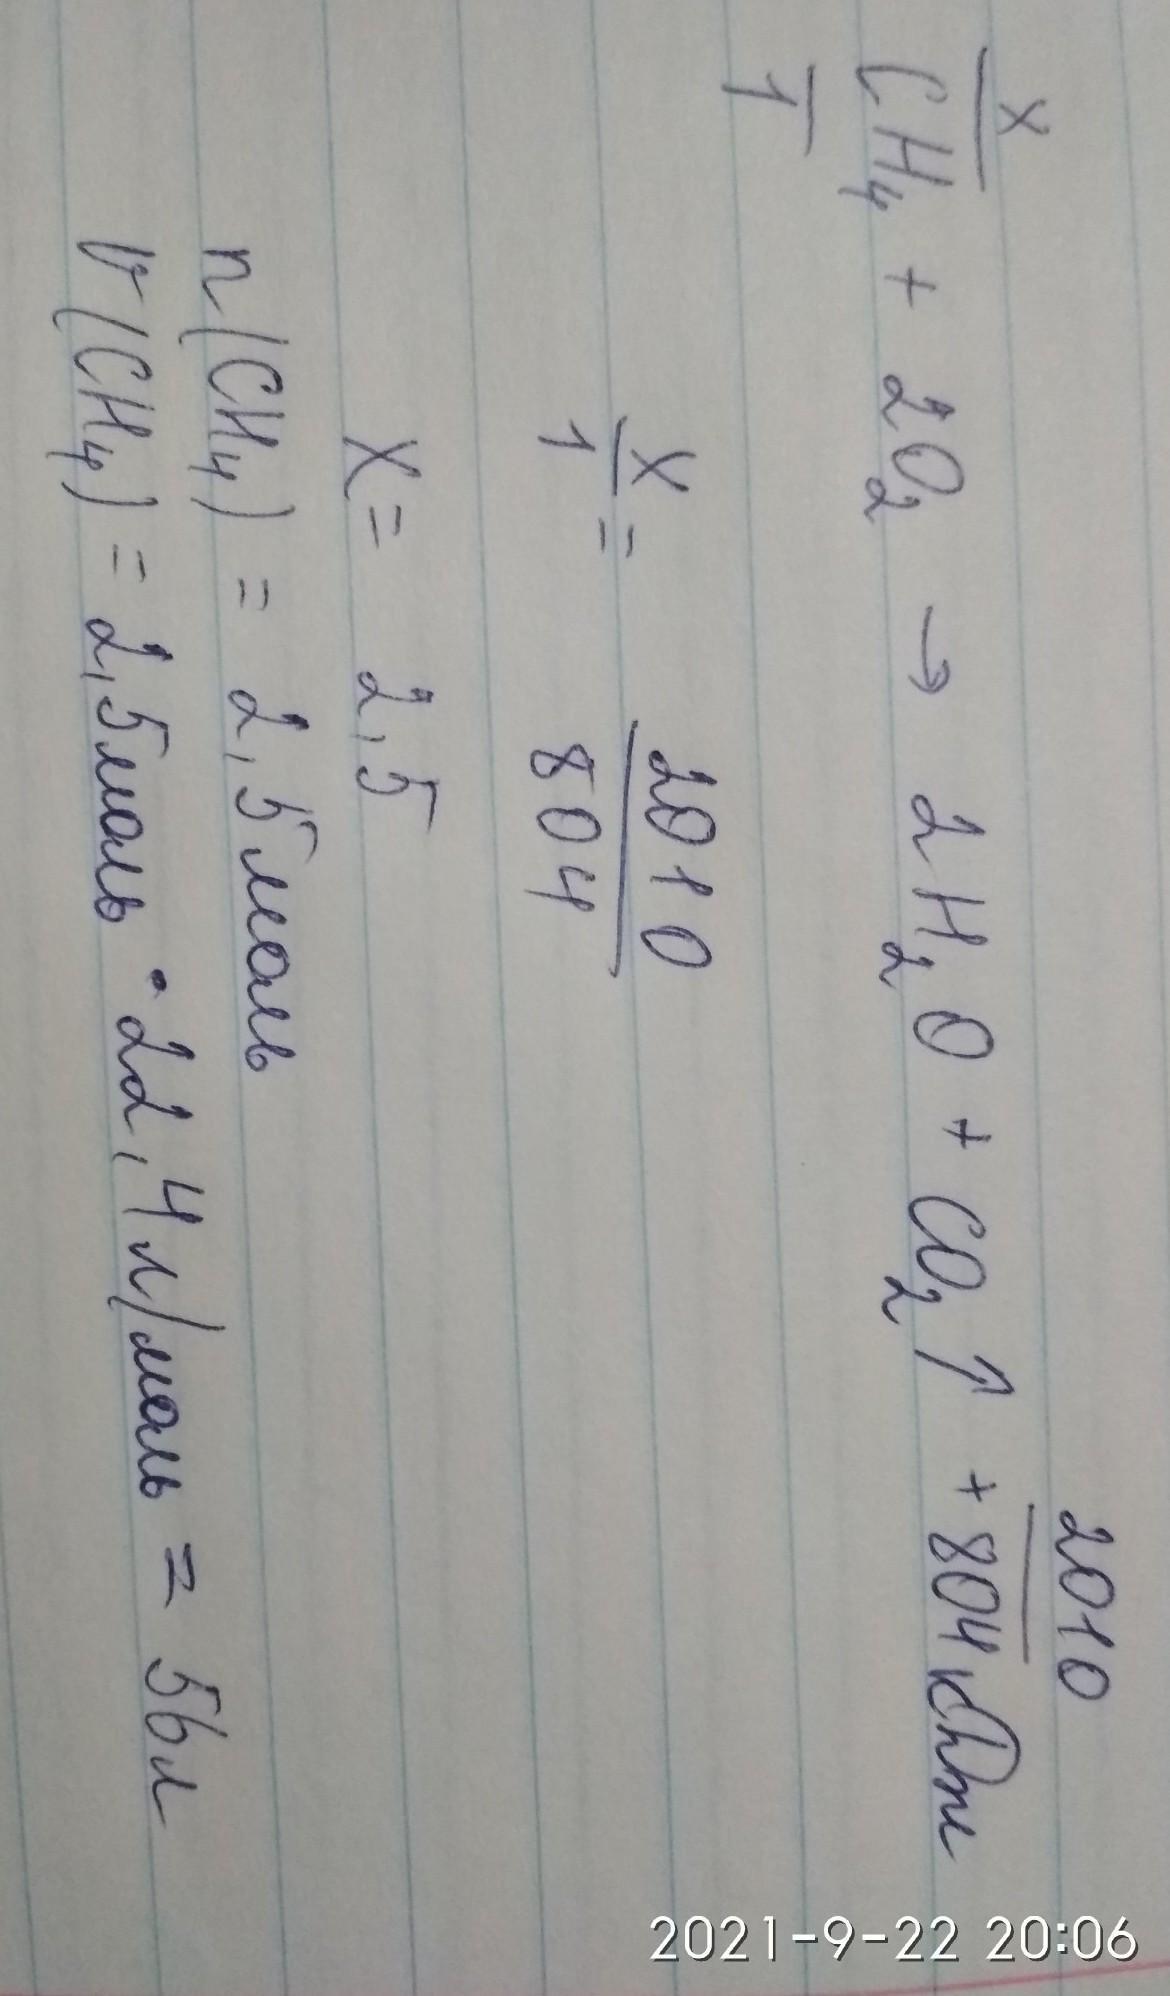 x 2010
CH₄ + 2O₂ → 2H₂O + CO₂↑ + 804 кДж
1
x/1 = 2010/804
x = 2,5
n(CH₄) = 2,5моль
V(CH₄) = 2,5моль · 22,4л/моль = 56л
2021-9-22 20:06